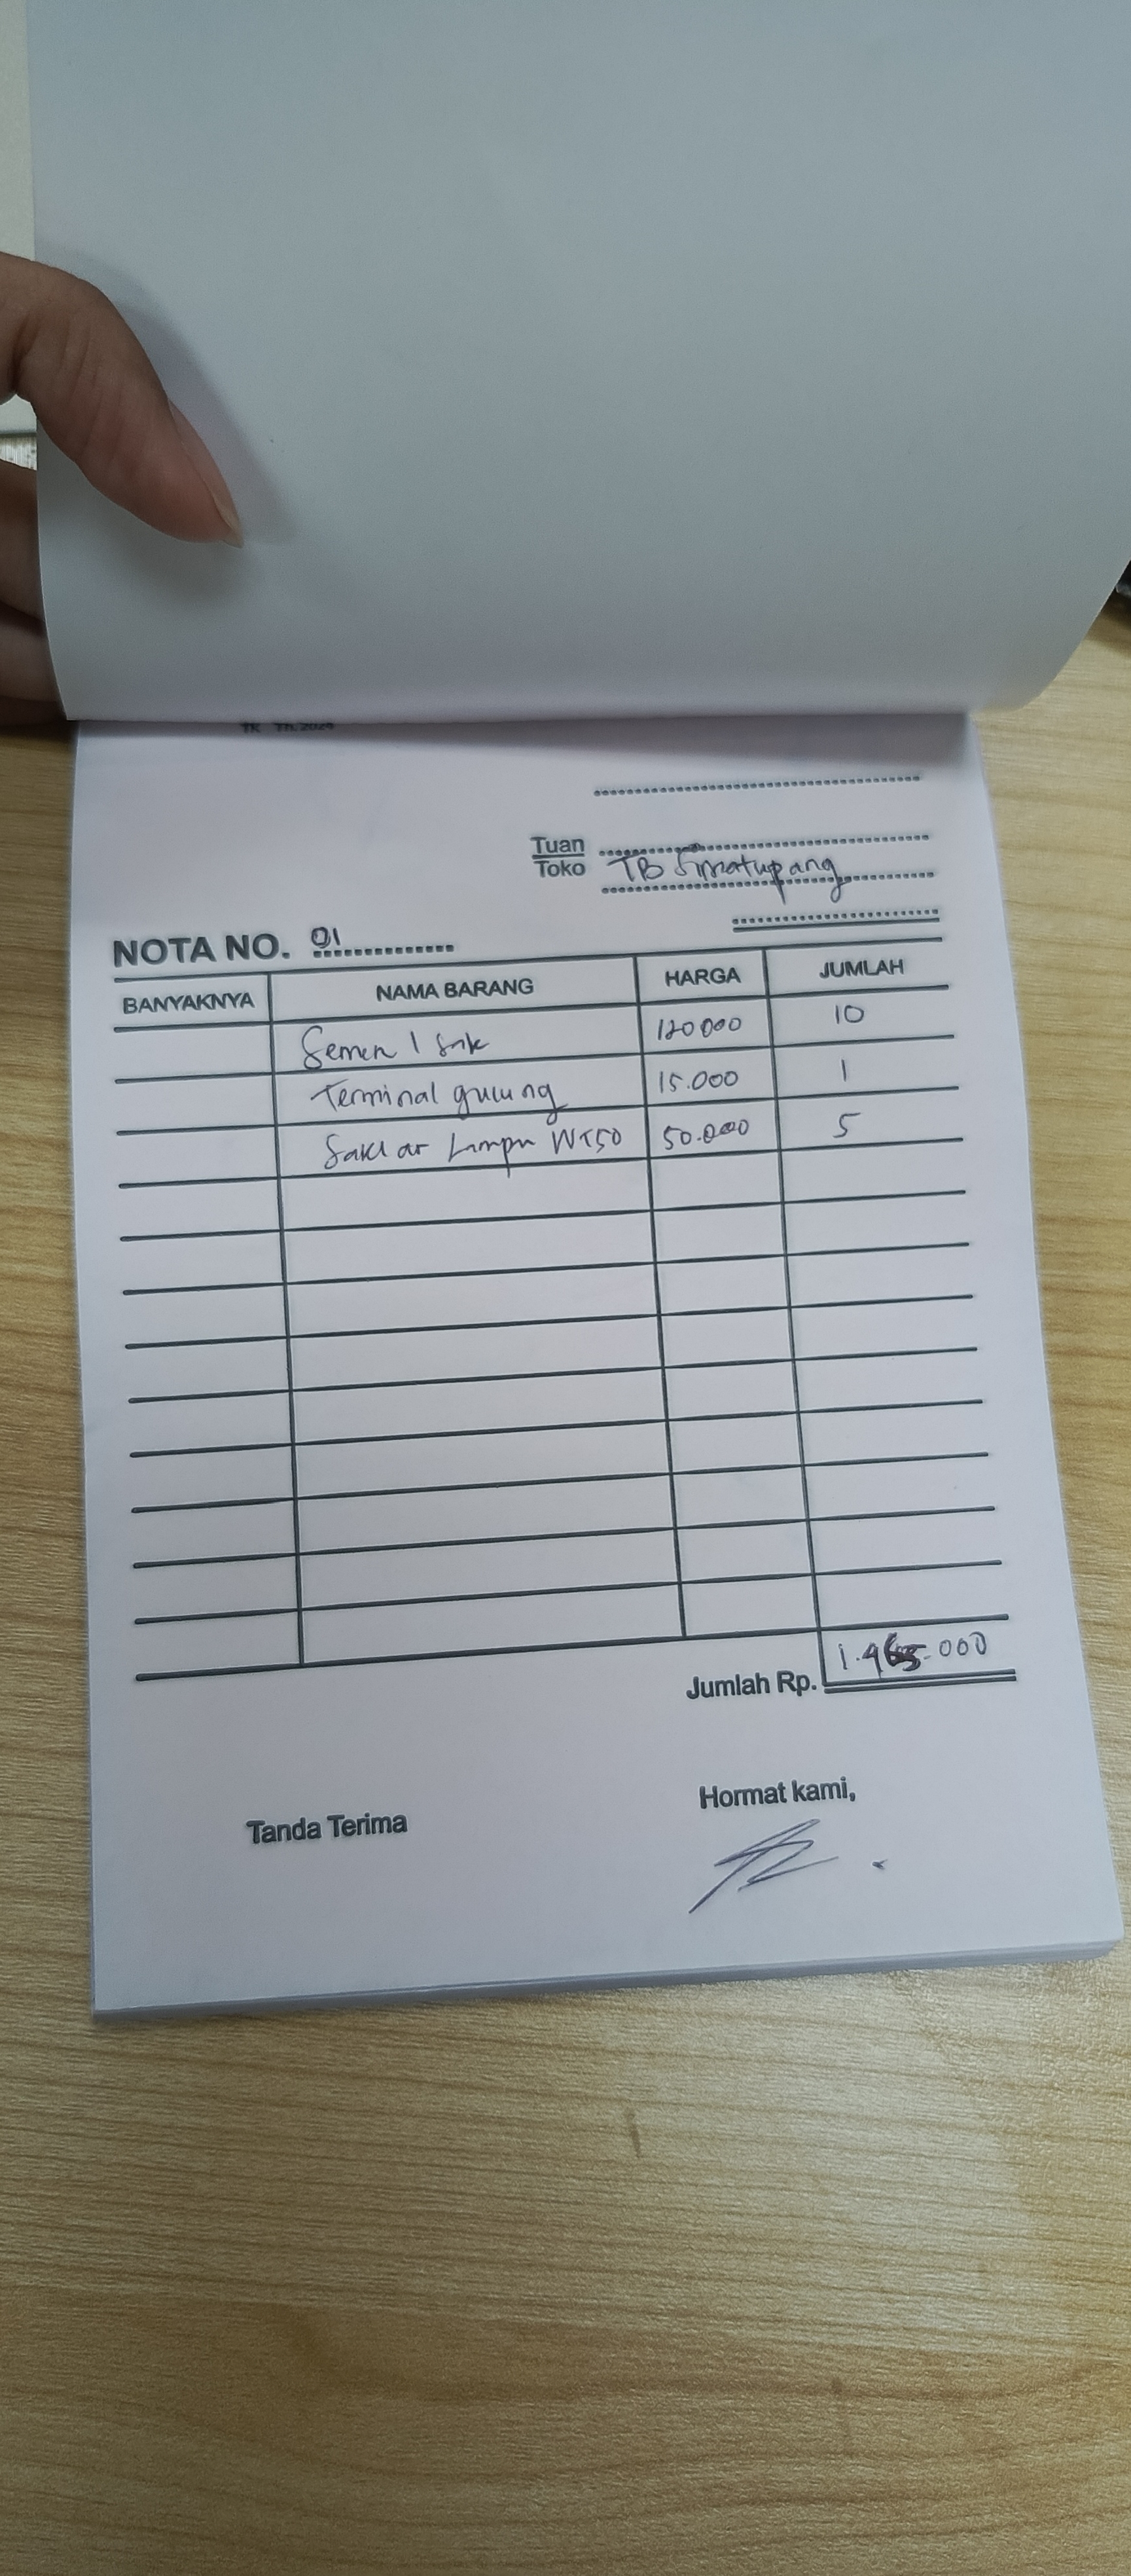 Th. 2024
Tuan
Toko TB Simatupang
NOTA NO. 01
BANYAKNYA NAMA BARANG HARGA JUMLAH
Semen 1 Sak 120000 10
Terminal gulung 15.000 1
Saklar Lampu WT50 50.000 5
Jumlah Rp. 1.465.000
Tanda Terima Hormat kami,